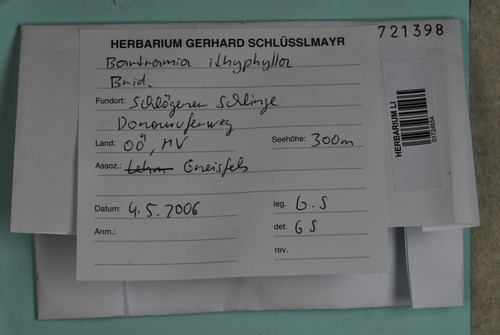 721398
HERBARIUM GERHARD SCHLÜSSLMAYR
Bartramia ithyphylla
Brid.
Fundort: Schlögener Schlinge
Donauuferweg
Land: OÖ, MV Seehöhe: 300m
Assoz.: Lehm Gneisfels
Datum: 4.5.2006 leg. G.S
Anm.: det. GS
rev.
HERBARIUM LI